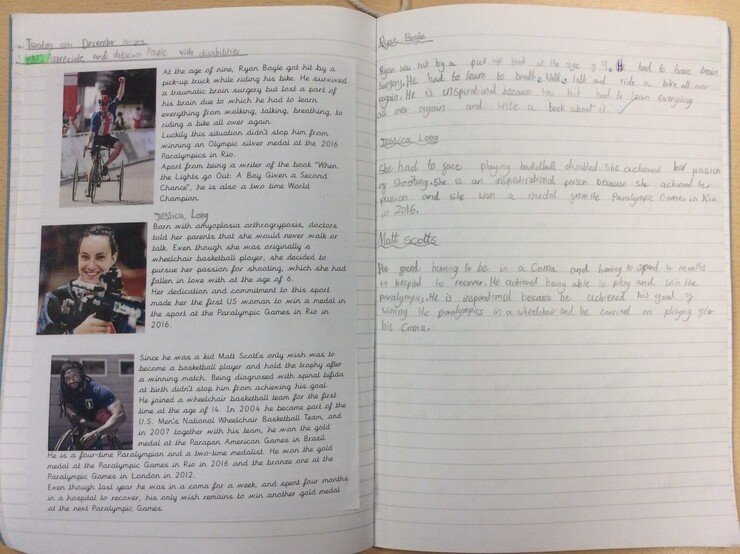 Tuesday December
Appreciate and discuss People with disabilities
At the age of nine, Ryan Boyle got hit by a
pick-up truck while riding his bike. He survived
a traumatic brain surgery but lost a part of
his brain due to which he had to learn
everything from walking, talking, breathing, to
riding a bike all over again.
Luckily this situation didn't stop him from
winning an Olympic silver medal at the 2016
Paralympics in Rio.
Apart from being a writer of the book "When
the Lights go Out: A Boy Given a Second
Chance", he is also a two time World
Champion.
Jessica Long
Born with amyoplasia arthrogryposis, doctors
told her parents that she would never walk or
talk. Even though she was originally a
wheelchair basketball player, she decided to
pursue her passion for shooting, which she had
fallen in love with at the age of 6.
Her dedication and commitment to this sport
made her the first US woman to win a medal in
the sport at the Paralympic Games in Rio in
2016.
Since he was a kid Matt Scott's only wish was to
become a basketball player and hold the trophy after
a winning match. Being diagnosed with spinal bifida
at birth didn't stop him from achieving his goal.
He joined a wheelchair basketball team for the first
time at the age of 14. In 2004 he became part of the
U.S. Men's National Wheelchair Basketball Team, and
in 2007 together with his team, he won the gold
medal at the Parapan American Games in Brazil.
He is a four-time Paralympian and a two-time medalist. He won the gold
medal at the Paralympic Games in Rio in 2016 and the bronze one at the
Paralympic Games in London in 2012.
Even though last year he was in a coma for a week, and spent four months
in a hospital to recover, his only wish remains to win another gold medal
at the next Paralympic Games.
Ryan Boyle
Ryan was hit by a pick up truck at the age of 9. had to have brain
surgery. He had to learn to breath, walk, talk and ride a bike all over
again. He is inspirational because was hit had to learn everything
all over again and write a book about it.
Jessica Long
She had to face playing basketball disabled. She achieved her passion
of shooting. She is an person because she achieved her
passion and she won a medal from the Paralympic Games in Rio
in 2016.
Matt scotts
He faced having to be in a Coma and having to spend 4 months
in hospital to recover. He achieved being able to play and win the
paralympics. He is inspirational because he achieved his goal of
wining the paralympics in a wheelchair and he carried on playing after
his Coma.